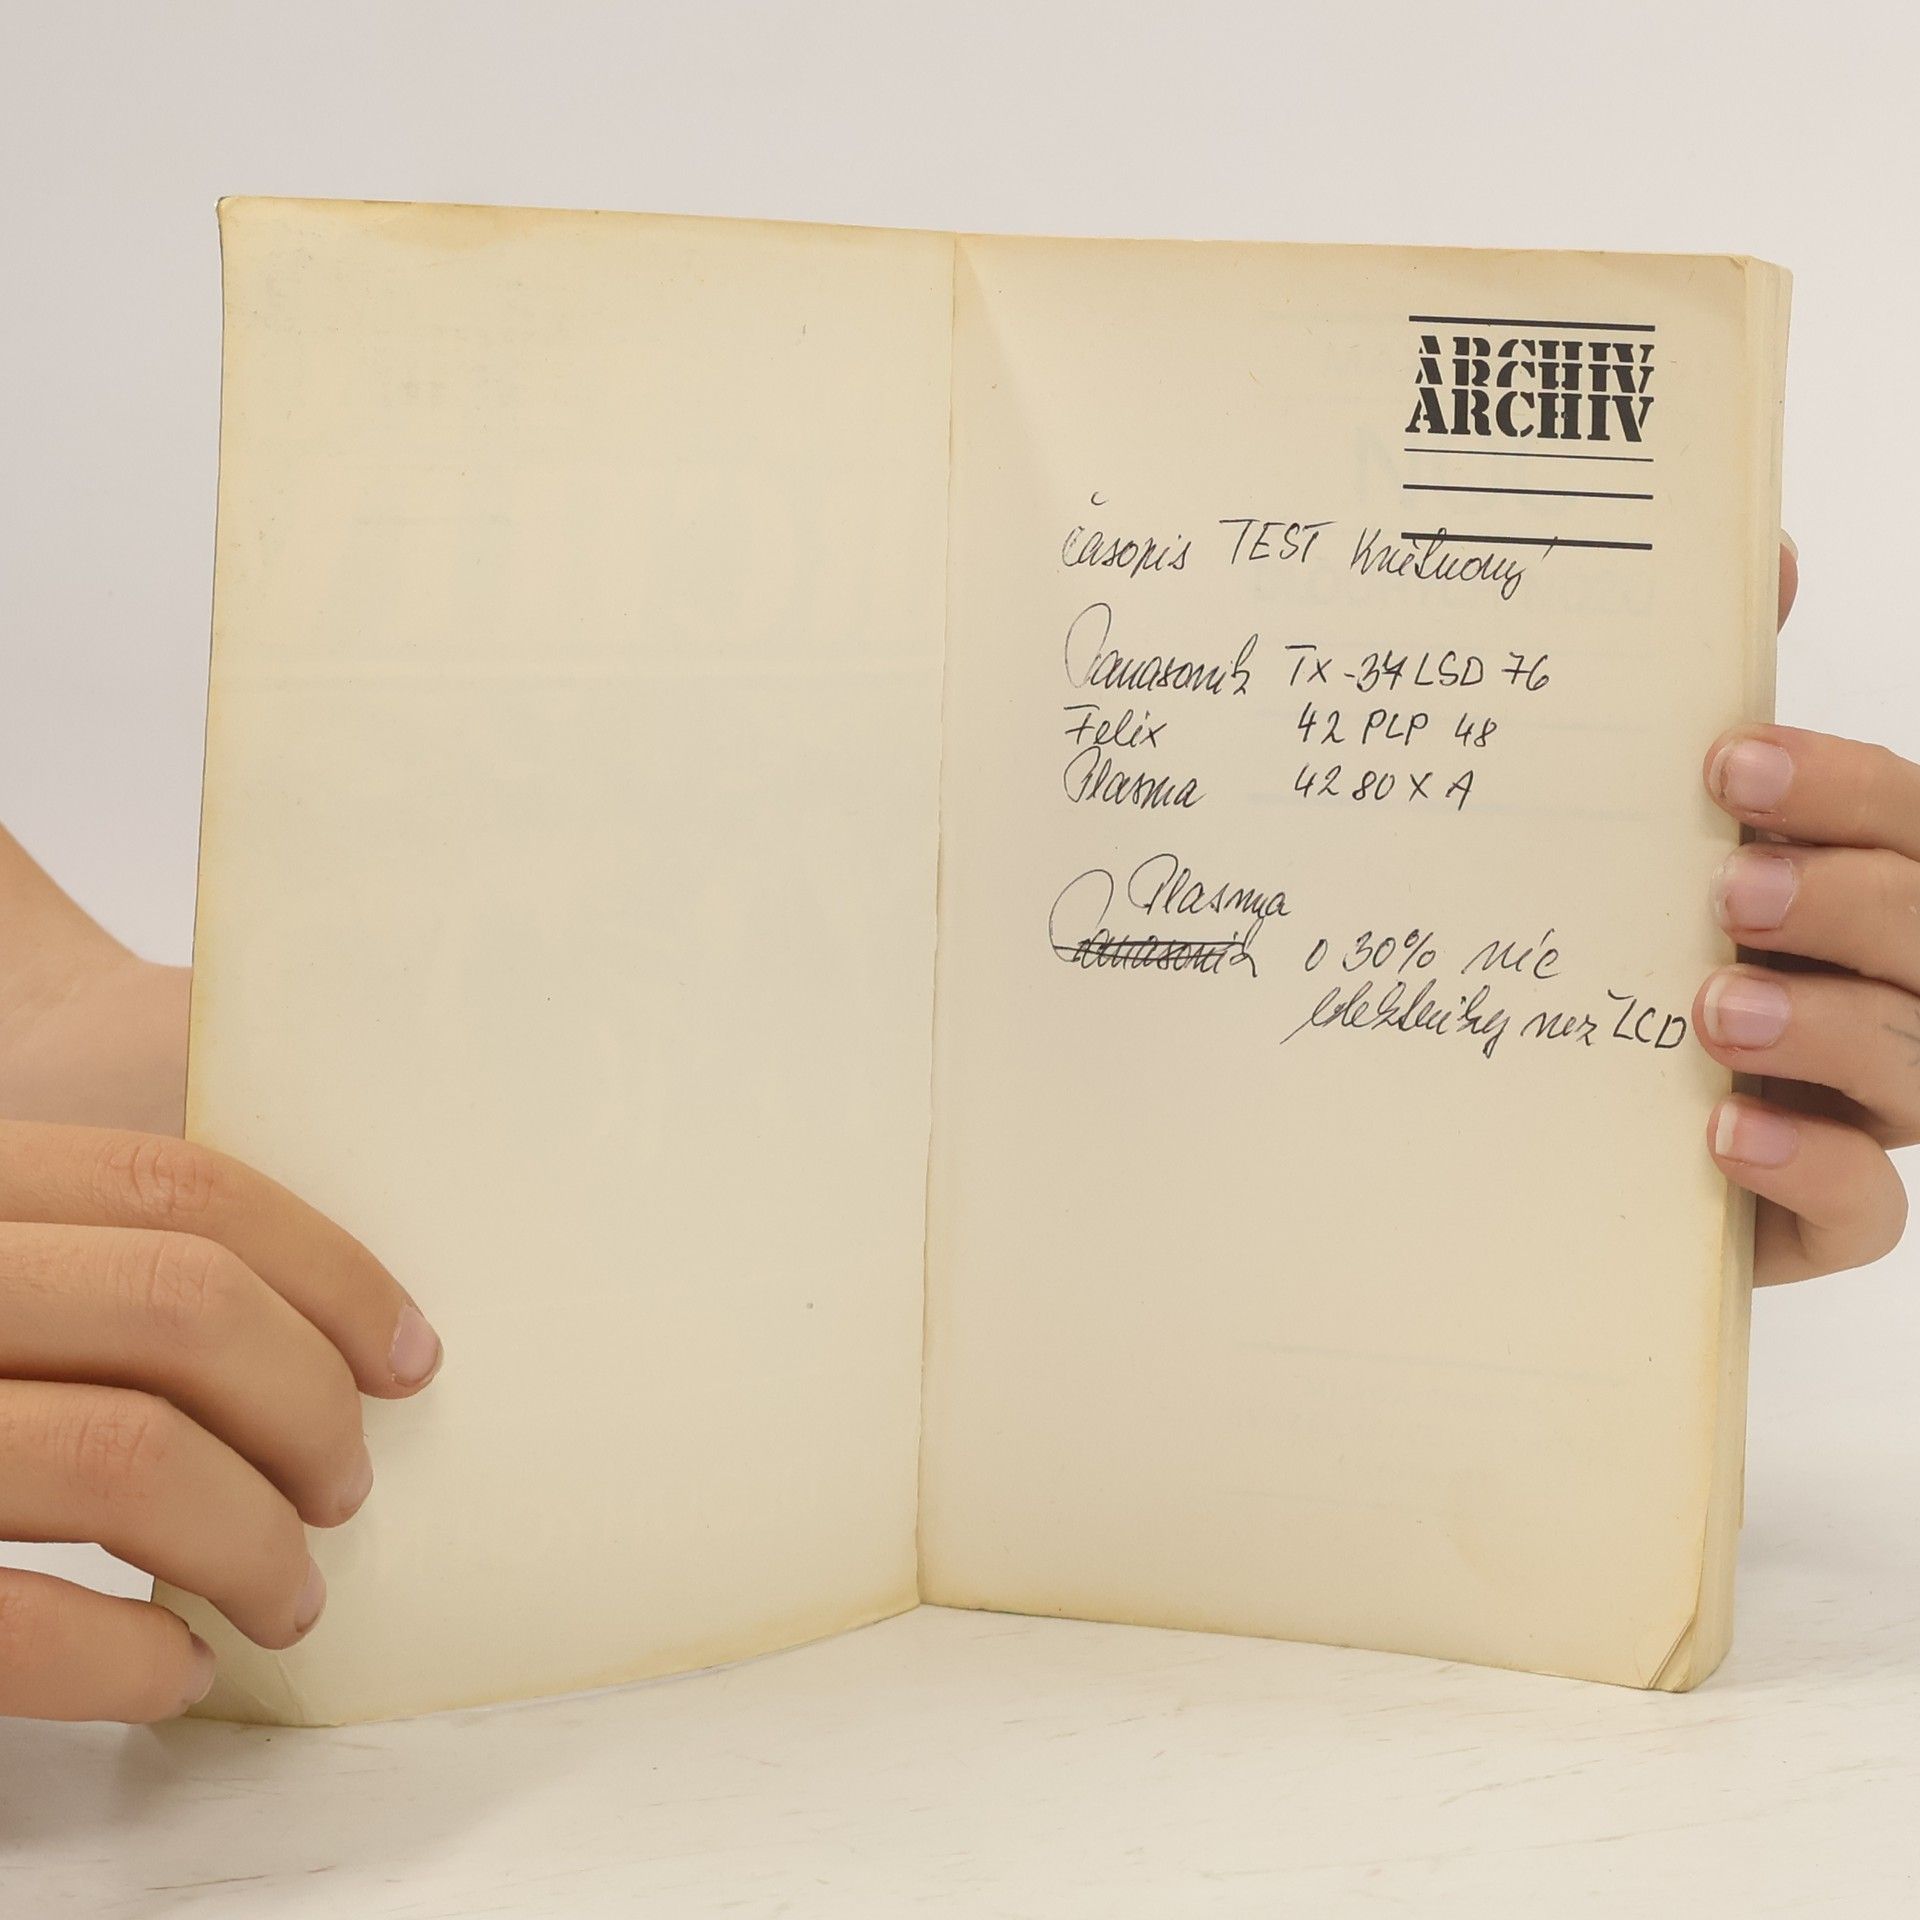 ARCHIV
ARCHIV
ARCHIV
časopis TEST Květnový
Panasonik TX-37 LSD 76
Felix 42 PLP 48
Plasma 4280 X A
Plasma
Panasonik o 30% víc
elektriky než LCD